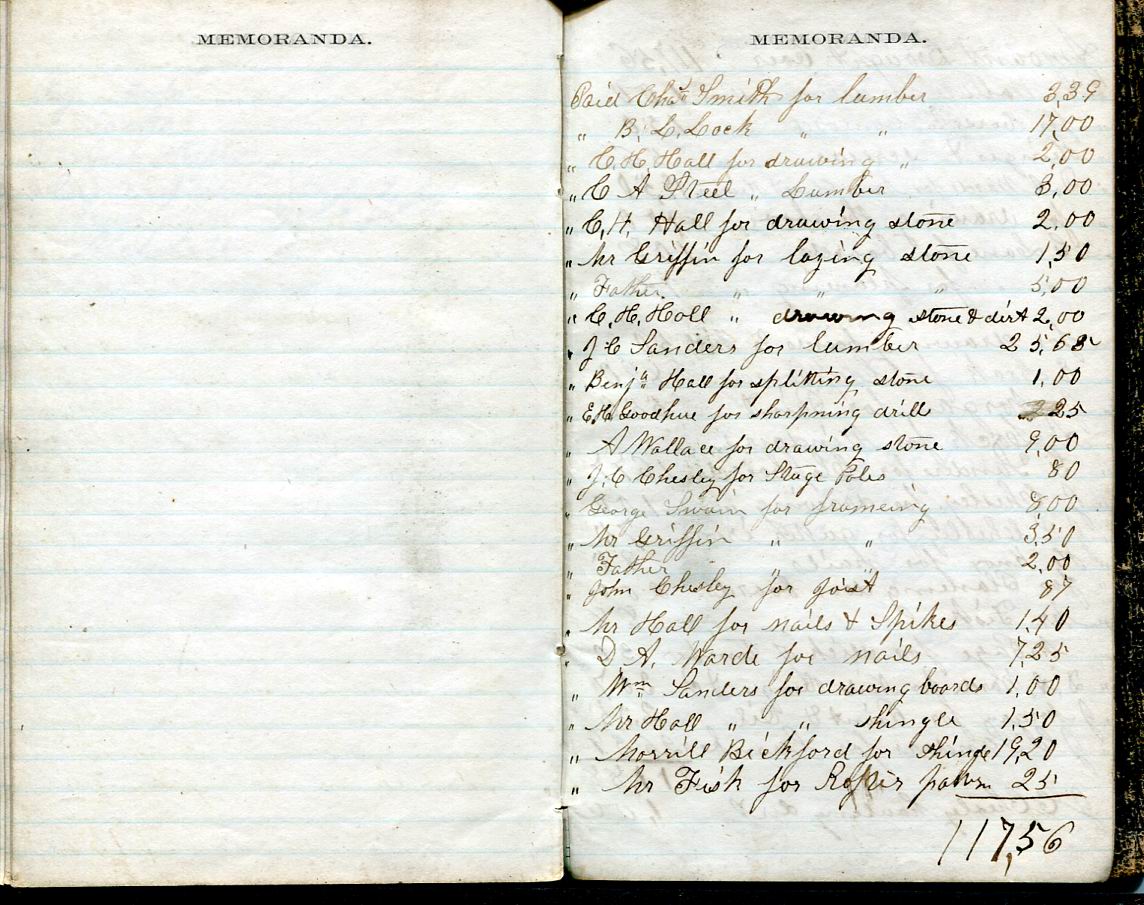 MEMORANDA.
MEMORANDA.
Paid Chas Smith for lumber 3,39
" B. L. Lock " " 17,00
" C. H. Hall for drawing " 2,00
" C A Steel " Lumber 3,00
" C, H, Hall for drawing stone 2,00
" Mr Griffin for laying stone 1,50
" Father " " " 5,00
" C. H. Hall " drawing stone & dirt 2,00
" J C Sanders for lumber 25,68
" Benja Hall for splitting stone 1,00
" E H Goodhue for sharpning drill 25
A Wallace for drawing stone 9,00
" J. C Chesley for Stage Poles 80
George Swain for frameing 8 00
" Mr Griffin " " 3,50
" Father 2,00
John Chesley for joist 87
" Mr Hall for nails & Spikes 1,40
" D A. Warde for nails 7,25
" Wm Sanders for drawing boards 1,00
" Mr Hall " " shingle 1,50
" Morrill Bickford for Shingle 19,20
" Mr Fisk for 25
117,56